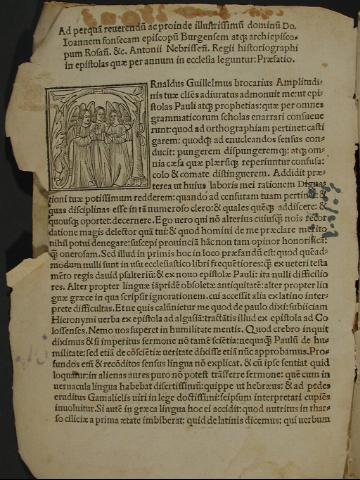 Ad perquã reuerendũ ac proinde illustrissimũ dominũ Do.
Ioannem fonsecam episcopũ Burgensem atq; archiepisco
pum Rosañ. &c. Antonii Nebrisseñ. Regii historiographi
in epistolas quæ per annum in ecclesia leguntur: Præfatio.
Rnaldus Guillelmus brocarius Amplitudi
nis tuæ cliẽs adiuratus admonuit me: ut epi
stolas Pauli atq; prophetias: quæ per omnes
grammaticorum scholas enarrari consueue
runt: quod ad orthographiam pertinet: casti
garem: quodq; ad enucleandos sensus con
ducit: pungerem dispungeremq;: atq; om
nia cæsa quæ plærisq; reperiuntur confusa:
colo & comate distinguerem. Addidit præ
terea ut huius laboris mei rationem Digna
tioni tuæ potissimum redderem: quando ad censuram tuam pertinet:
quas disciplinas esse in tã numeroso clero: & quales quẽq; addiscere: &
quousq; oportet: decernere. Ego uero qui nõ alterius cuiusq; nois recor
datione magis delector quã tui: & quod homini de me præclare merito
nihil potui denegare: suscepi prouinciã hãc non tam opinor honorificã
q̃ onerosam. Sed illud in primis hoc in loco præfandũ est: quod quẽad
modum nulli sunt in usu ecclesiastico libri frequẽtiores: q̃ ex ueteri testa
mẽto regis dauid psalterũ: & ex nouo epistolæ Pauli: ita nulli difficilio
res. Alter propter linguæ ãpridẽ obsoletæ antiquitatẽ: alter propter lin
guæ græcæ in qua scripsit ignorationem. cui accessit alia ex latino inter-
prete difficultas. Et ne quis calũnietur me quod de paulo dixi: subiiciam
Hieronymi uerba ex epistola ad algasiã: tractãtis illud ex epistola ad Co
lossenses. Nemo uos superet in humilitate mentis. Quod crebro inquit
diximus & si imperitus sermone nõ tamẽ sciẽtia: nequaq̃ Paulũ de hu-
militate: sed etiã de cõsciẽtiæ ueritate dixisse etiã nũc approbamus. Pro-
fundos em̃ & recõditos sensus lingua nõ explicat. & cũ ipse sentiat quid
loquitur: in alienas aures puro nõ potest trãsferre sermone: quẽ cum in
uernacula lingua habebat disertissimũ: quippe ut hebræus: & ad pedes
eruditus Gamalielis uiri in lege doctissimi: seipsum interpretari cupiẽs
inuoluitur. Si autẽ in græca lingua hoc ei accidit: quod nutritus in thar-
so ciliciæ a prima ætate imbiberat: quid de latinis dicemus: qui uerbum